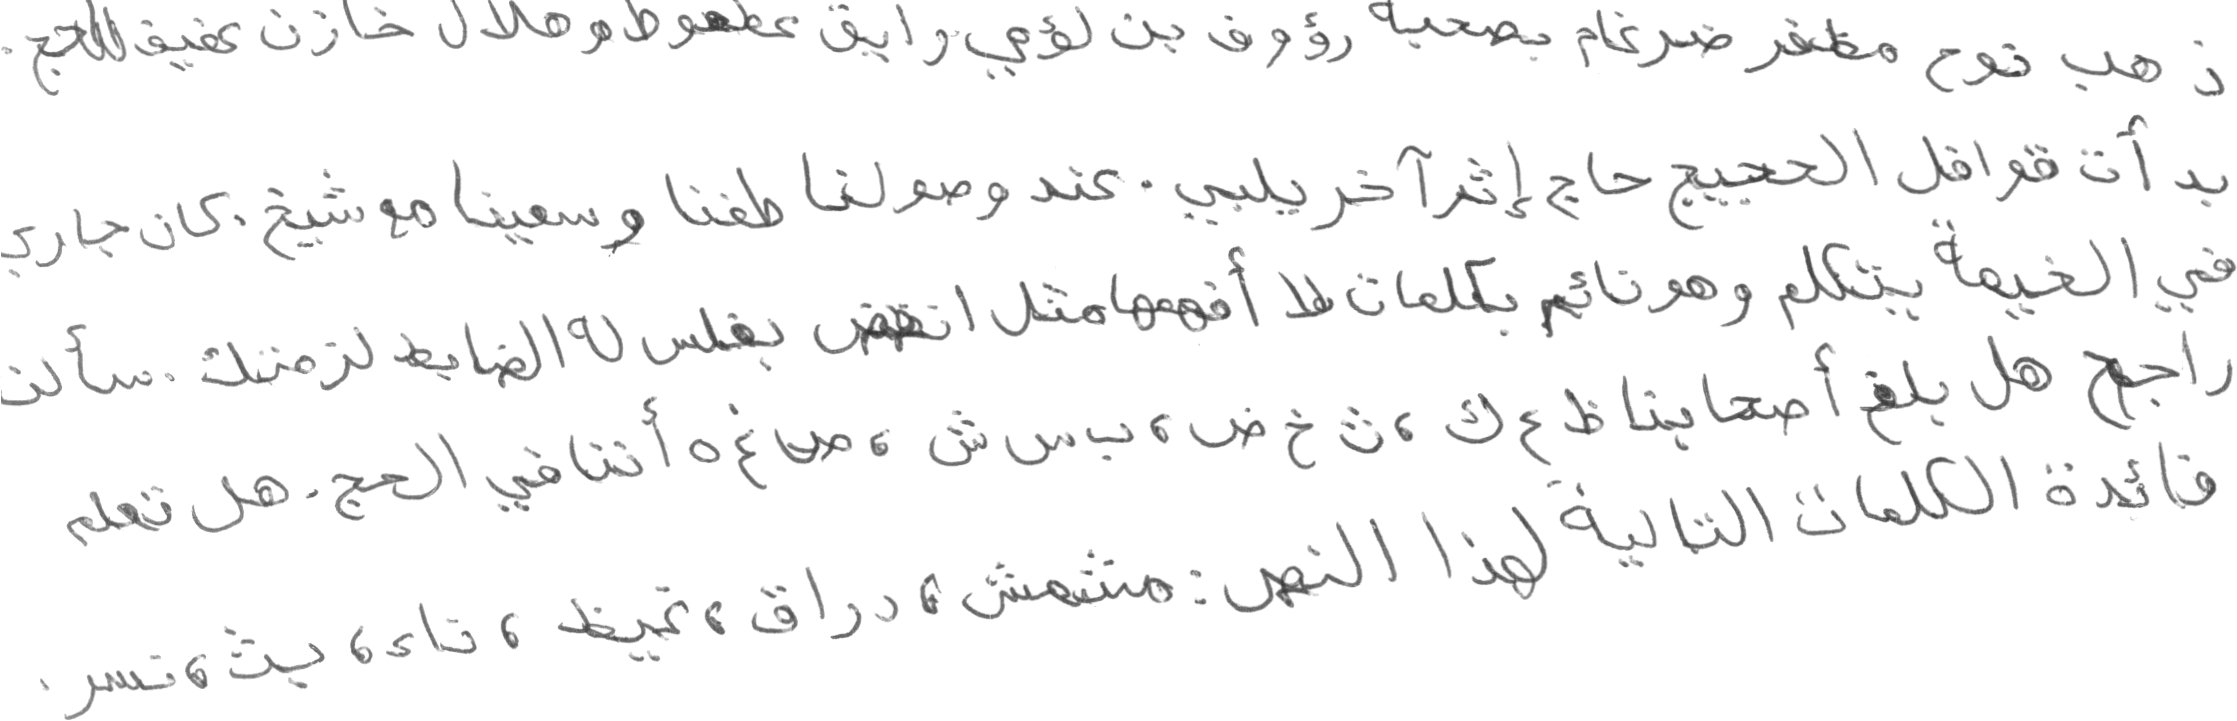 ذهب نوح مظفر ضرغام بصحبة رؤوف بن لؤي رايق عظعوط و هلال خازن عفيف للحج.
بدأت قوافل الحجيج حاج إثر آخر يلبي. عند وصولنا طفنا وسعينا مع شيخ. كان جاري
في الخيمة يتكلم وهو نائم بكلمات لا أفهمها مثل انقضض بفلس له الضابط لزمنك. سألت
راجح هل بلغ أصحابنا ظ ع ك ، ث خ ض ، ب س ش ، ص غ ه أننا في الحج. هل تعلم
فائدة الكلمات التالية لهذا النص: مشمش ، دراق ، غيظ ، ناء ، بث ، نسر.